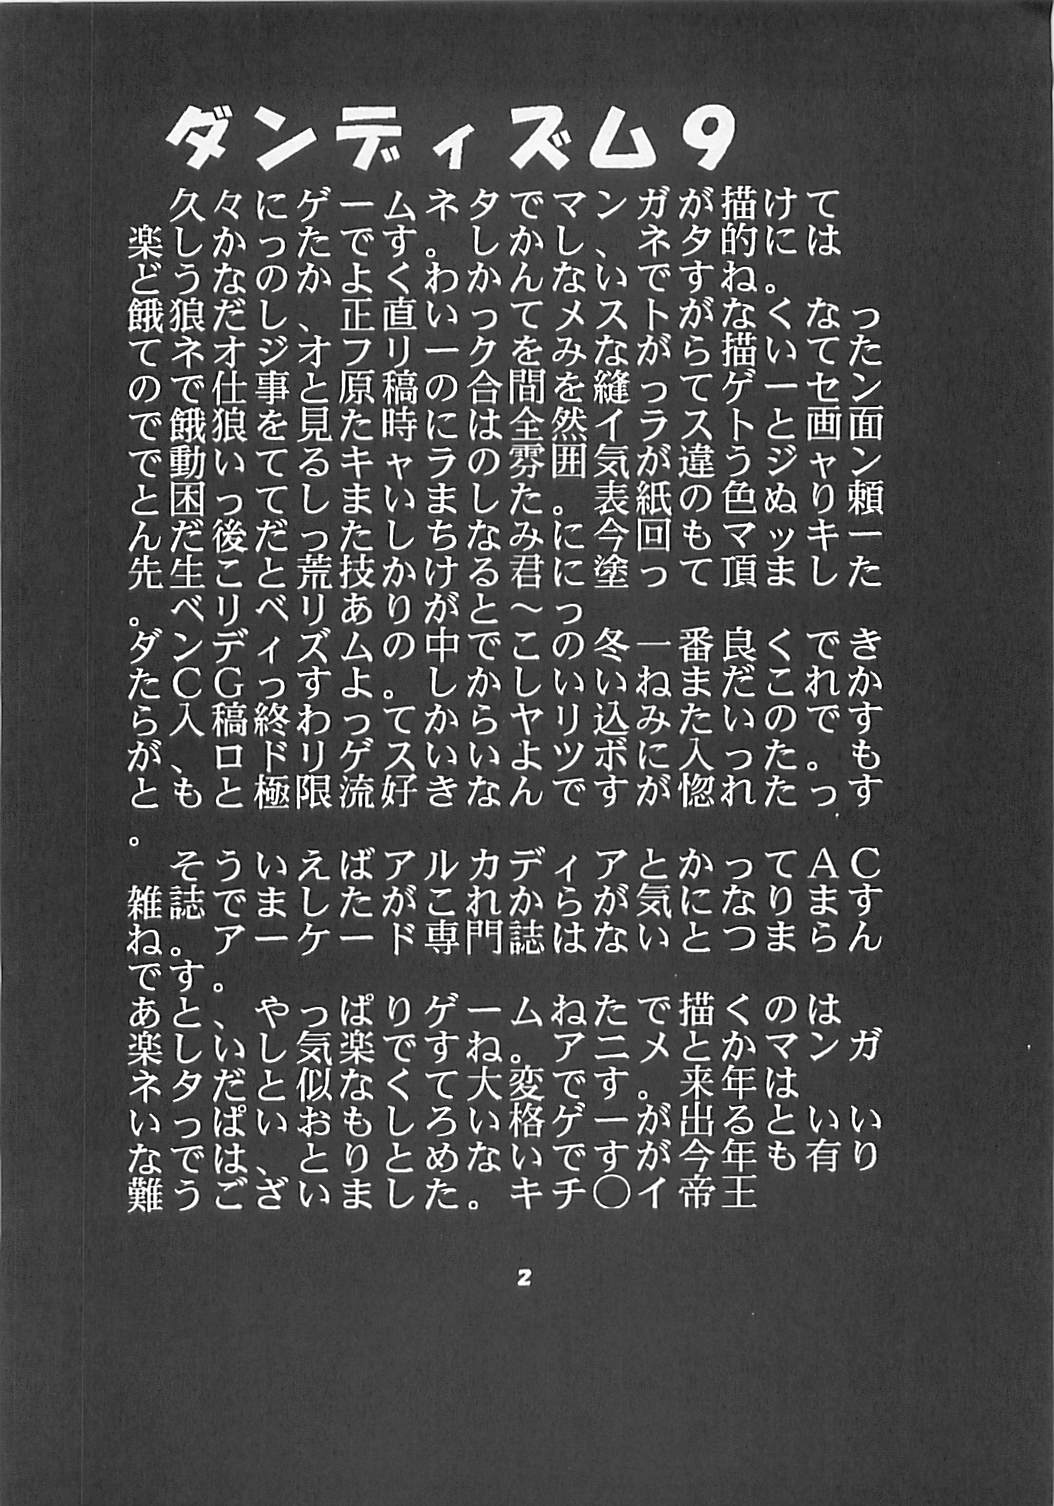 ダンディズム9
久々にゲームネタでマンガが描けて
楽しかったです。しかし、ネタ的には
どうなのかよくわかんないですね。
餓狼だし、正直いってメストがなくなっ
てネオジオフリークをみながら描いてた
ので仕事と原稿の合間を縫ってゲーセン
で餓狼を見た時には全然イラストと画面
で動いてるキャラの雰囲気が違うジャン
と困ってしまいました。表紙の色ぬり頼
んだ後だったしちなみに今回もマッキー
先生こと荒技かける君に塗って頂ました
。ベリベリありがと〜っ
ダンディズムの中でこの冬一番良くでき
たＣＧっすよ。しかしいいねまだこれか
ら入稿終わってからヤリ込みたいのです
が、ロドリゲスいいよツボに入った。も
ともと極限流好きなんですが惚れたっす
。
そういえばアルカディアとかってＡＣ
雑誌でましたがこれからが気になります
ね。アーケード専門誌はないとつまらん
です。
あと、やっぱりゲームねたで描くのは
楽しいし気楽ですね。アニメとかマンガ
ネタだと似なくて大変です。来年は
いっぱいおもしろい格ゲーが出るといい
なでは、とりとめないですが今年も有り
難うございました。キチ〇イ帝王
2